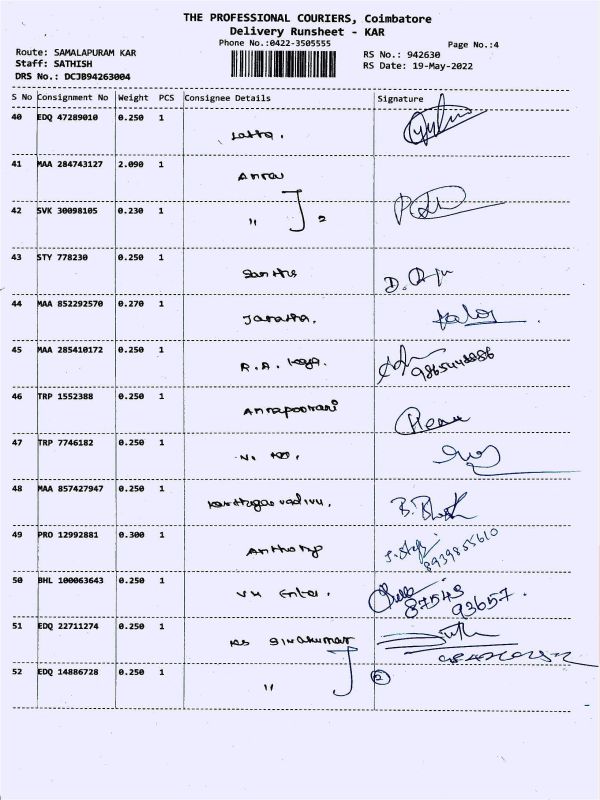 THE PROFESSIONAL COURIERS, Coimbatore
Delivery Runsheet - KAR
Phone No.:0422-3505555
Page No.:4
Route: SAMALAPURAM KAR
RS No.: 942630
Staff: SATHISH
RS Date: 19-May-2022
DRS No.: DCJB94263004
S No Consignment No Weight PCS Consignee Details Signature
40 EDQ 47289010 0.250 1
41 MAA 284743127 2.090 1
42 SVK 30098105 0.230 1 " 2
43 STY 778230 0.250 1 D.
44 MAA 852292570 0.270 1
45 MAA 285410172 0.250 1 R.A.
46 TRP 1552388 0.250 1 Annapoorani
47 TRP 7746182 0.250 1
48 MAA 857427947 0.250 1 B.
49 PRO 12992881 0.300 1 Anthony
8939855610
50 BHL 100063643 0.250 1 Enter.
87543
93657.
51 EDQ 22711274 0.250 1 Sivakumar
52 EDQ 14886728 0.250 1 " 2